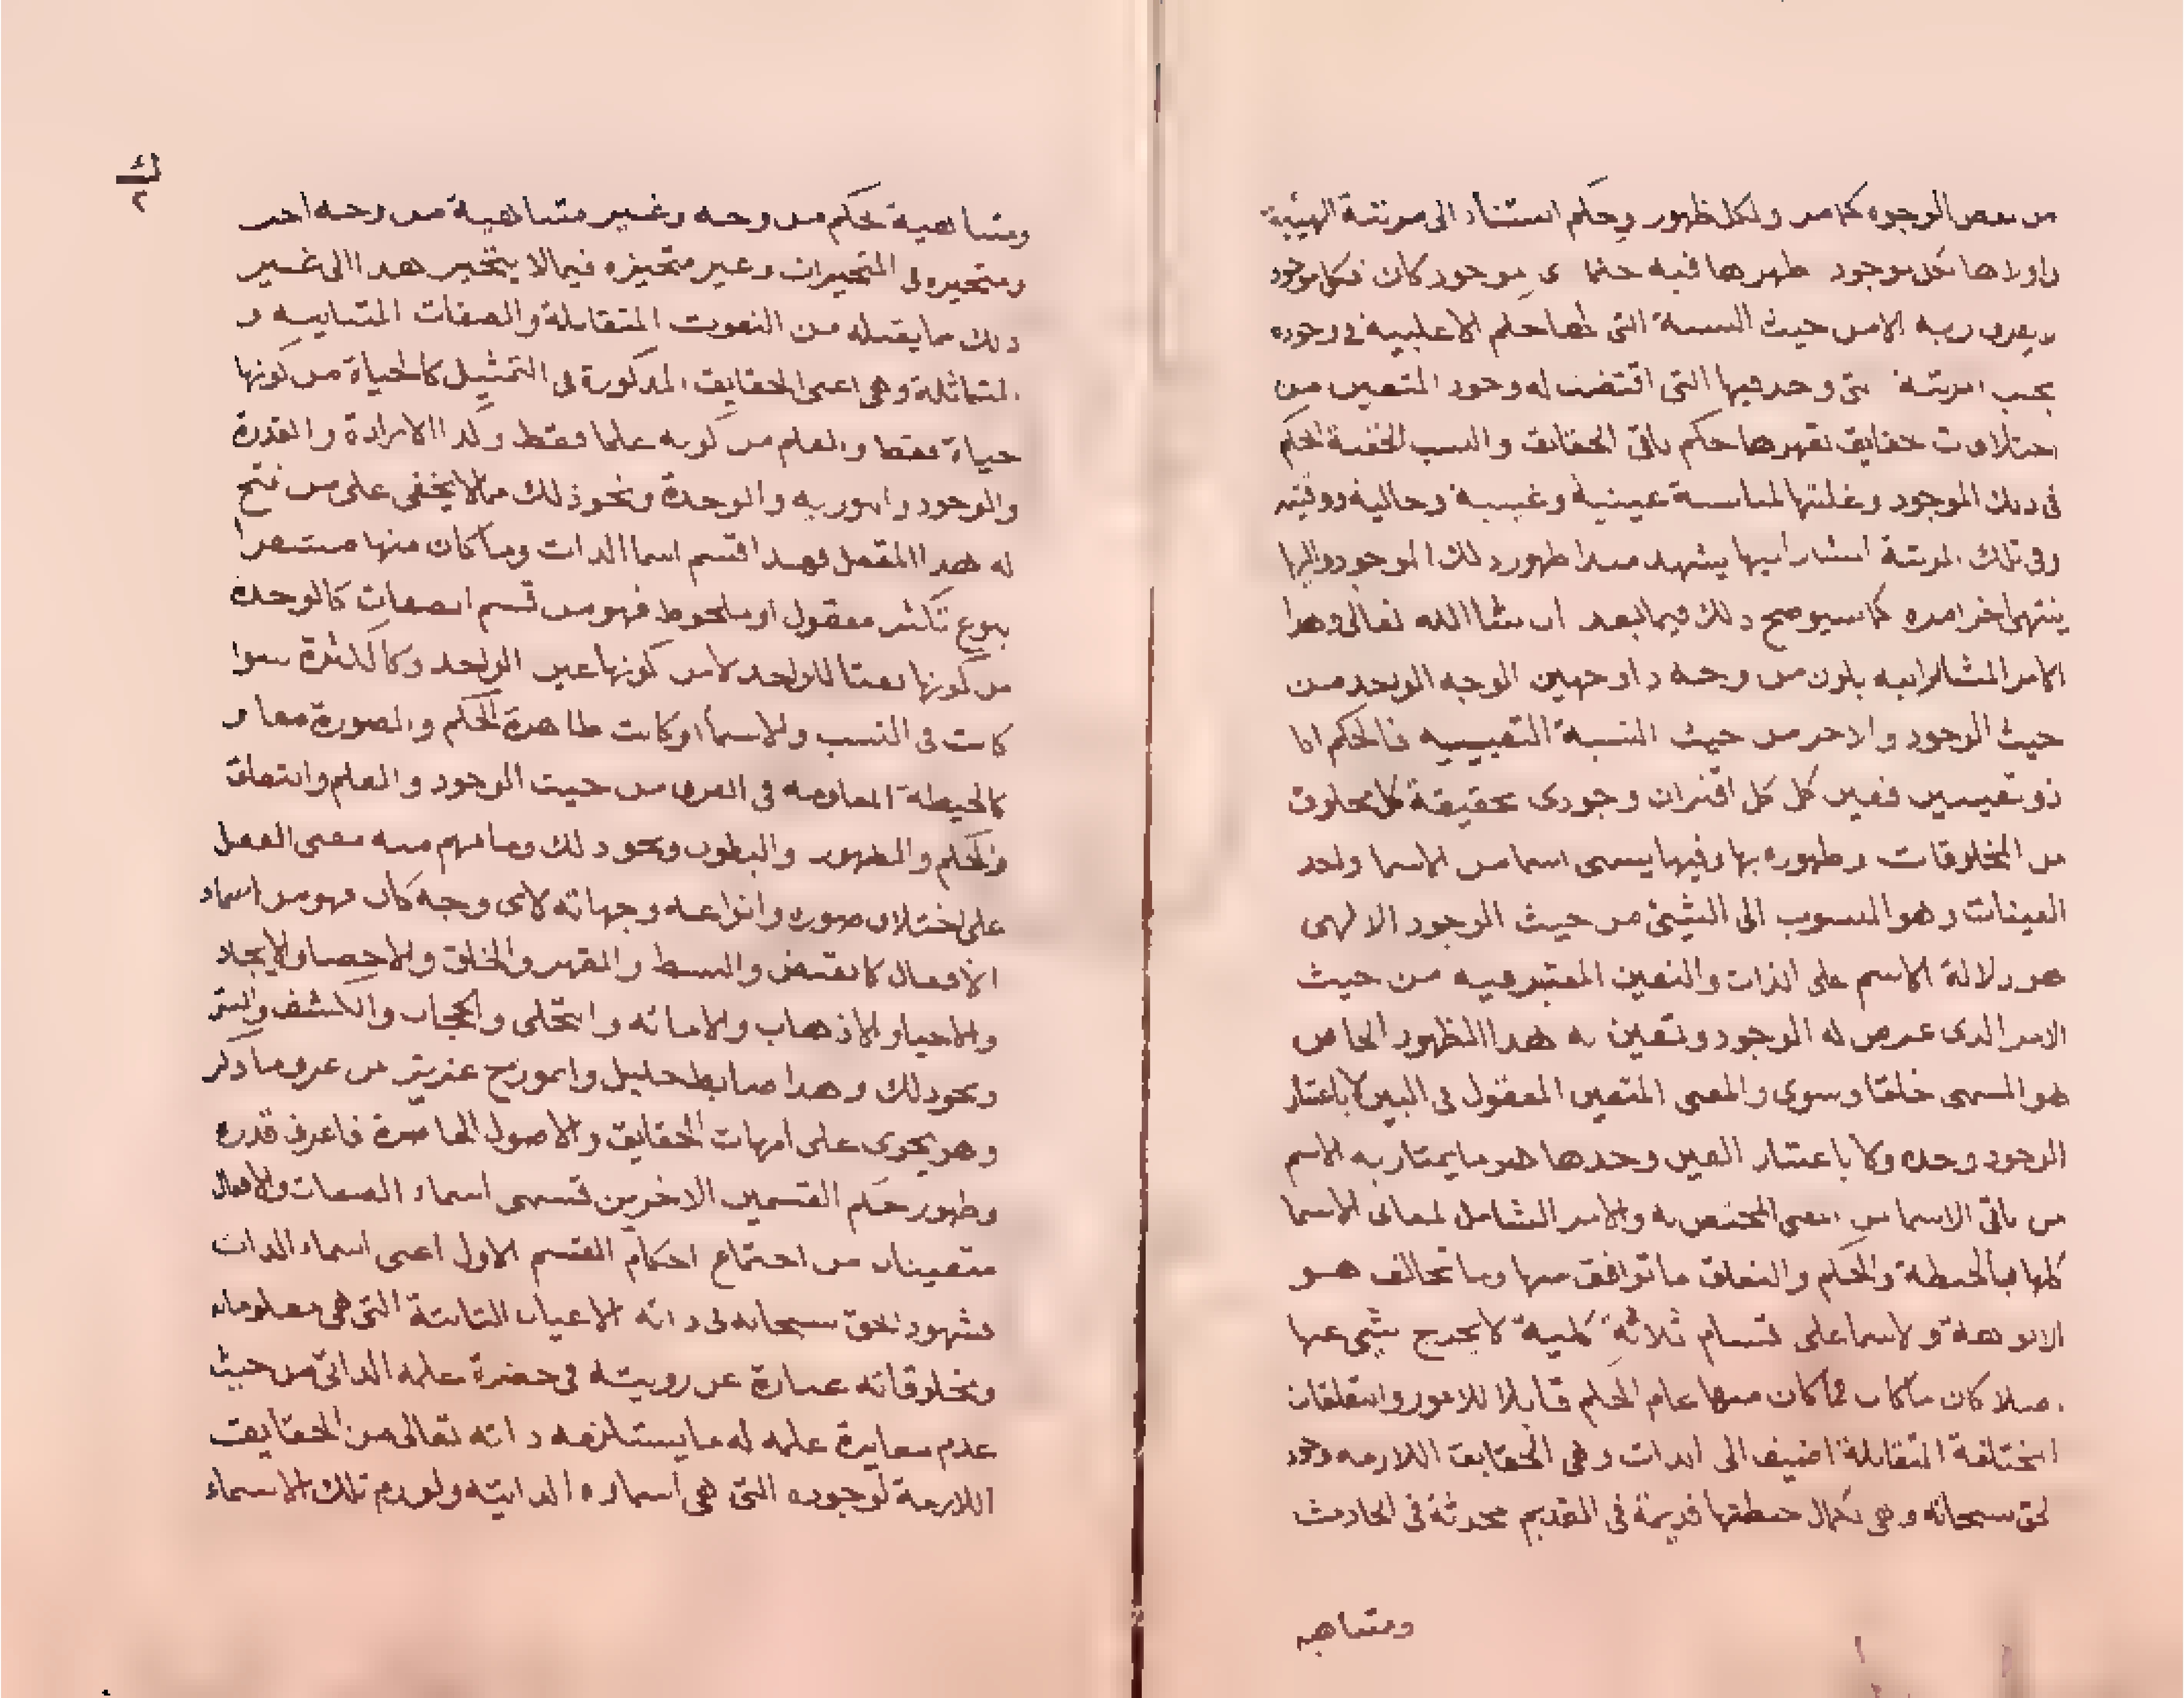 من بعض الوجوه كما مر ولكل ظهور وحكم استناد الى مرتبة الهية
واولاها بكل موجود ظهرها فيه حكما اى موجود كان فكل موجود
لا يعرف ربه الا من حيث النسبة التى لها حكم الاغلبية فى وجوده
بحسب المرتبة التى وجد فيها التى اقتضت له وجود المتعين من
اختلافات حقايق تقهرها حكم باقى الحقايق والنسب الخفية الحكم
فى ذلك الموجود وغلبتها لمناسبة عينية وغيبية وحالية ووقتية
وفى تلك المرتبة اشار اليها يشهد مبدا ظهور ذلك الموجود واليها
ينتهى اخر امره كما سيوضح ذلك فيما بعد ان شا الله تعالى وهذا
الامر المشار اليه يكون من وجه ذا وجهين الوجه الواحد من
حيث الوجود والاخر من حيث النسبة التقييدية فالحكم
كل اقتران وجودى بحقيقة كل مخلوق
من المخلوقات وظهوره بها وفيها يسمى اسما من الاسما واحد
التعينات وهو المنسوب الى الشيئ من حيث الوجود الالهى
هو دلالة الاسم على الذات والتعين المعتبر فيه من حيث
الامر الذى عرض له الوجود وتعين به هذا الظهور الخاص
هو المسمى خلقا وسوى والمعنى المتعين المعقول فى البين لا باعتبار
الوجود وحده ولا باعتبار العين وحدها هو ما يمتاز به الاسم
من باقى الاسما من المعنى المختص به والامر الشامل لمعانى الاسما
كلها بالحيطة والحكم والتعلق ما توافق منها وما تخالف هو
الالوهة والاسما على اقسام ثلاثة كلية لا يخرج شيئ عنها
اصلا كان ما كان فما كان منها عام الحكم قابلا للامور والتعلقات
المختلفة المتقابلة اضيف الى الذات وهى الحقايق اللازمه وجود
الحق سبحانه وهى بكمال حيطتها قديمة فى القديم محدثة فى الحادث
ومتناهية
ك
٢
ومتناهية بحكم من وجه وغير متناهية من وجه اخر
ومتحيزه فى المتحيزات وغير متحيزه فيما لا يتحيز هذا الى غير
ذلك مما يقبله من النعوت المتقابلة والصفات المتباينه و
المتماثلة وهى اعنى الحقايق المذكورة فى التمثيل كالحياة من كونها
حياة فقط والعلم من كونه علما فقط وكذا الارادة والقدرة
والوجود والنوريه والوحدة ونحو ذلك مما لا يخفى على من فتح
له هذا المقفل فهذا قسم اسما الذات وما كان منها مشعرا
بنوع تكثر معقول او ملحوظ فهو من قسم الصفات كالوحدة
من كونها نعتا للواحد لا من كونها عين الواحد وكالكثرة سوا
كانت فى النسب والاسما او كانت ظاهرة الحكم والصورة معا و
كالحيطة المعلومه فى العرف من حيث الوجود والعلم والتعلق
والحكم والظهور والبطون ونحو ذلك وما فهم منه معنى الفعل
على اختلاف صوره وانواعه وجهاته لاى وجه كان فهو من اسماء
الافعال كالقبض والبسط والقهر والخلق والاحصا والايجاد
والاحيا والاذهاب والاماته والتجلى والحجاب والكشف والستر
ونحو ذلك وهذا ضابط جليل وانموذج عزيز من عرف ما ذكر
وهو يحوى على امهات الحقايق والاصول الحاصرة فاعرف قدره
وظهور حكم القسمين الاخرين تسمى اسماء الصفات والافعال
متعينات من اجتماع احكام القسم الاول اعنى اسماء الذات
فشهود الحق سبحانه فى ذاته الاعيان الثابتة التى هى معلوماته
ومخلوقاته عبارة عن رويته فى حضرة علمه الذاتى من حيث
عدم مغايرة علمه له ما يستلزمه ذاته تعالى من الحقايق
اللازمة لوجوده التى هى اسماوه الذاتيه ولوازم تلك الاسماء